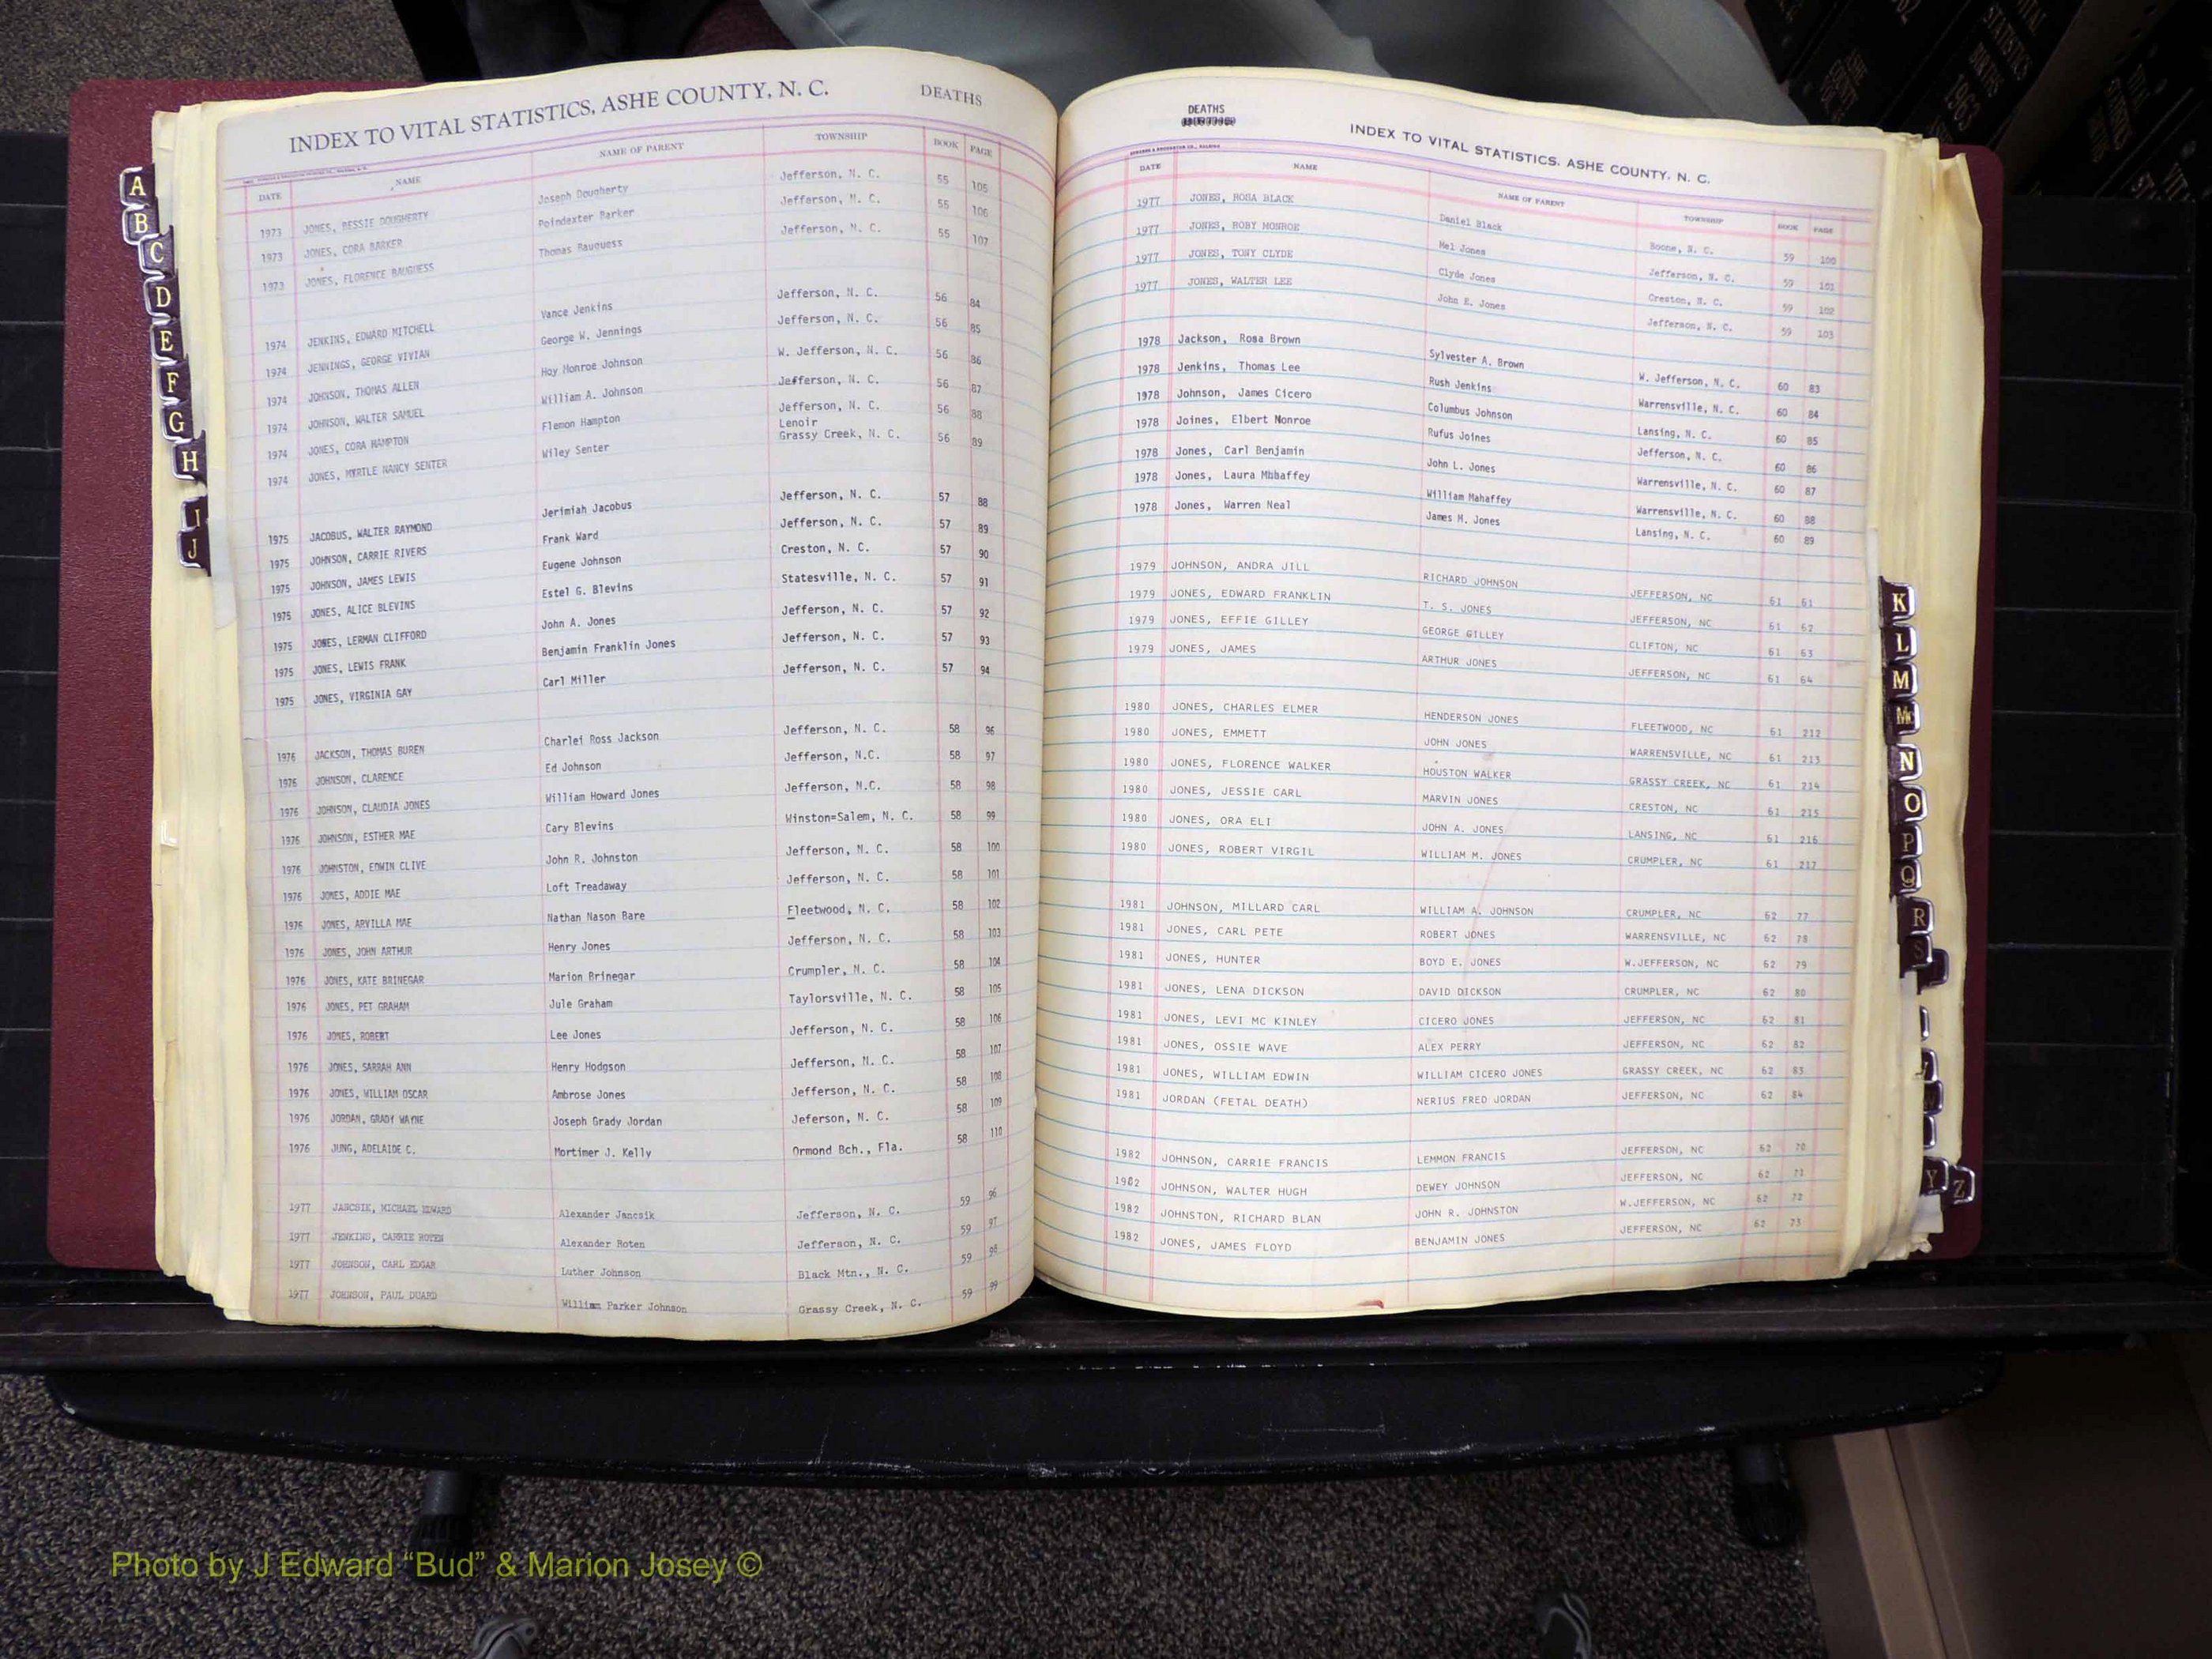 INDEX TO VITAL STATISTICS, ASHE COUNTY, N. C. DEATHS
DATE NAME NAME OF PARENT TOWNSHIP BOOK PAGE
1973 JONES, BESSIE DOUGHERTY Joseph Dougherty Jefferson, N. C. 55 105
1973 JONES, CORA BARKER Poindexter Barker Jefferson, N. C. 55 106
1973 JONES, FLORENCE BAUGUESS Thomas Bauguess Jefferson, N. C. 55 107
1974 JENKINS, EDWARD MITCHELL Vance Jenkins Jefferson, N. C. 56 84
1974 JENNINGS, GEORGE VIVIAN George W. Jennings Jefferson, N. C. 56 85
1974 JOHNSON, THOMAS ALLEN Hoy Monroe Johnson W. Jefferson, N. C. 56 86
1974 JOHNSON, WALTER SAMUEL William A. Johnson Jefferson, N. C. 56 87
1974 JONES, CORA HAMPTON Flemon Hampton Jefferson, N. C. 56 88
Lenoir
1974 JONES, MYRTLE NANCY SENTER Wiley Senter Grassy Creek, N. C. 56 89
1975 JACOBUS, WALTER RAYMOND Jerimiah Jacobus Jefferson, N. C. 57 88
1975 JOHNSON, CARRIE RIVERS Frank Ward Jefferson, N. C. 57 89
1975 JOHNSON, JAMES LEWIS Eugene Johnson Creston, N. C. 57 90
1975 JONES, ALICE BLEVINS Estel G. Blevins Statesville, N. C. 57 91
1975 JONES, LERMAN CLIFFORD John A. Jones Jefferson, N. C. 57 92
1975 JONES, LEWIS FRANK Benjamin Franklin Jones Jefferson, N. C. 57 93
1975 JONES, VIRGINIA GAY Carl Miller Jefferson, N. C. 57 94
1976 JACKSON, THOMAS BUREN Charlei Ross Jackson Jefferson, N. C. 58 96
1976 JOHNSON, CLARENCE Ed Johnson Jefferson, N.C. 58 97
1976 JOHNSON, CLAUDIA JONES William Howard Jones Jefferson, N.C. 58 98
1976 JOHNSON, ESTHER MAE Cary Blevins Winston=Salem, N. C. 58 99
1976 JOHNSTON, EDWIN CLIVE John R. Johnston Jefferson, N. C. 58 100
1976 JONES, ADDIE MAE Loft Treadaway Jefferson, N. C. 58 101
1976 JONES, ARVILLA MAE Nathan Nason Bare Fleetwood, N. C. 58 102
1976 JONES, JOHN ARTHUR Henry Jones Jefferson, N. C. 58 103
1976 JONES, KATE BRINEGAR Marion Brinegar Crumpler, N. C. 58 104
1976 JONES, PET GRAHAM Jule Graham Taylorsville, N. C. 58 105
1976 JONES, ROBERT Lee Jones Jefferson, N. C. 58 106
1976 JONES, SARRAH ANN Henry Hodgson Jefferson, N. C. 58 107
1976 JONES, WILLIAM OSCAR Ambrose Jones Jefferson, N. C. 58 108
1976 JORDAN, GRADY WAYNE Joseph Grady Jordan Jeferson, N. C. 58 109
1976 JUNG, ADELAIDE C. Mortimer J. Kelly Ormond Bch., Fla. 58 110
1977 JANCSIK, MICHAEL EDWARD Alexander Jancsik Jefferson, N. C. 59 96
1977 JENKINS, CARRIE ROTEN Alexander Roten Jefferson, N. C. 59 97
1977 JOHNSON, CARL EDGAR Luther Johnson Black Mtn., N. C. 59 98
1977 JOHNSON, PAUL DUARD William Parker Johnson Grassy Creek, N. C. 59 99
DEATHS
INDEX TO VITAL STATISTICS, ASHE COUNTY, N. C.
DATE NAME NAME OF PARENT TOWNSHIP BOOK PAGE
1977 JONES, ROSA BLACK Daniel Black Boone, N. C. 59 100
1977 JONES, ROBY MONROE Mel Jones Jefferson, N. C. 59 101
1977 JONES, TONY CLYDE Clyde Jones Creston, N. C. 59 102
1977 JONES, WALTER LEE John E. Jones Jefferson, N. C. 59 103
1978 Jackson, Rosa Brown Sylvester A. Brown W. Jefferson, N. C. 60 83
1978 Jenkins, Thomas Lee Rush Jenkins Warrensville, N. C. 60 84
1978 Johnson, James Cicero Columbus Johnson Lansing, N. C. 60 85
1978 Joines, Elbert Monroe Rufus Joines Jefferson, N. C. 60 86
1978 Jones, Carl Benjamin John L. Jones Warrensville, N. C. 60 87
1978 Jones, Laura Mhhaffey William Mahaffey Warrensville, N. C. 60 88
1978 Jones, Warren Neal James M. Jones Lansing, N. C. 60 89
1979 JOHNSON, ANDRA JILL RICHARD JOHNSON JEFFERSON, NC 61 61
1979 JONES, EDWARD FRANKLIN T. S. JONES JEFFERSON, NC 61 62
1979 JONES, EFFIE GILLEY GEORGE GILLEY CLIFTON, NC 61 63
1979 JONES, JAMES ARTHUR JONES JEFFERSON, NC 61 64
1980 JONES, CHARLES ELMER HENDERSON JONES FLEETWOOD, NC 61 212
1980 JONES, EMMETT JOHN JONES WARRENSVILLE, NC 61 213
1980 JONES, FLORENCE WALKER HOUSTON WALKER GRASSY CREEK, NC 61 214
1980 JONES, JESSIE CARL MARVIN JONES CRESTON, NC 61 215
1980 JONES, ORA ELI JOHN A. JONES LANSING, NC 61 216
1980 JONES, ROBERT VIRGIL WILLIAM M. JONES CRUMPLER, NC 61 217
1981 JOHNSON, MILLARD CARL WILLIAM A. JOHNSON CRUMPLER, NC 62 77
1981 JONES, CARL PETE ROBERT JONES WARRENSVILLE, NC 62 78
1981 JONES, HUNTER BOYD E. JONES W.JEFFERSON, NC 62 79
1981 JONES, LENA DICKSON DAVID DICKSON CRUMPLER, NC 62 80
1981 JONES, LEVI MC KINLEY CICERO JONES JEFFERSON, NC 62 81
1981 JONES, OSSIE WAVE ALEX PERRY JEFFERSON, NC 62 82
1981 JONES, WILLIAM EDWIN WILLIAM CICERO JONES GRASSY CREEK, NC 62 83
1981 JORDAN (FETAL DEATH) NERIUS FRED JORDAN JEFFERSON, NC 62 84
1982 JOHNSON, CARRIE FRANCIS LEMMON FRANCIS JEFFERSON, NC 62 70
1982 JOHNSON, WALTER HUGH DEWEY JOHNSON JEFFERSON, NC 62 71
1982 JOHNSTON, RICHARD BLAN JOHN R. JOHNSTON W.JEFFERSON, NC 62 72
1982 JONES, JAMES FLOYD BENJAMIN JONES JEFFERSON, NC 62 73
A
B
C
D
E
F
G
H
I
J
K
L
M
Mc
N
O
P
Q
R
S
Y
Z
VITAL
STATISTICS
BIRTHS
1963
Photo by J Edward “Bud” & Marion Josey ©